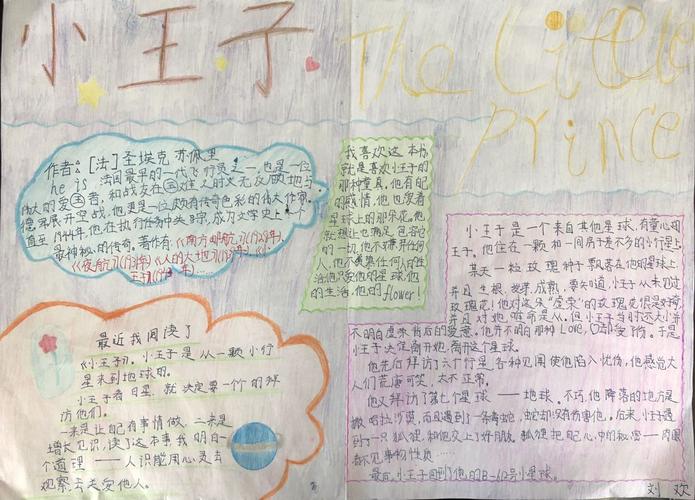 小王子
The Little
Prince
作者:[法]圣埃克苏佩里
he is 法国最早的一代飞行员之一,也是一位
伟大的爱国者,和战友在国难之时义无反顾地与
德军展开空战,他更是一位颇有传奇色彩的伟大作家。
直至1944年,他在执行任务中失踪,成为文学史上
最神秘的传奇。著作有《南方邮航》(1929年)
《夜航》《人的大地》《小
王子》
我喜欢这本书
就是喜欢小王子的
那种童真,他有他
的感情,他也爱着
星球上的那朵花。他
就想让也满足,包容它
的一切,他不嫌弃任何
人,他不羡慕任何人的生
活,他只爱他的星球,他
的生活,他的flower!
最近我阅读了
《小王子》。小王子是从一颗小行
星来到地球的。
小王子看日星,就决定要一个个的拜
访他们。
一来是让自己有事情做,二来是
增长见识,读了这本书我明白一
个道理——人只能用心灵去
观察,去关爱他人。
小王子是一个来自其他星球,有童心的
王子。他住在一颗和一间房子差不多的小行星上
某天一粒玫瑰种子飘落在他的星球上
并且生根、发芽、成熟,要知道,小王子从未见过
玫瑰花!他对这朵“虚荣”的玫瑰花很是好奇
并且对她唯命是从,但小王子当时还太小并
不明白虚荣背后的爱意。他并不明白那种LOVE,只却受了伤。于是
小王子决定离开她,离开这个星球。
他先后拜访了六个行星,各种见闻使他陷入忧伤,他感觉大
人们荒唐可笑,太不正常。
他又拜访了第七个星球——地球。不巧,他降落的地方是
撒哈拉沙漠,而且遇到了一条毒蛇,蛇却没有伤害他。后来,小王子遇
到了一只狐狸,和他交上了好朋友,狐狸把自己心中的秘密——肉眼
看不见事物性质……
最后,小王子回到了他的B-612号小星球。
刘欢